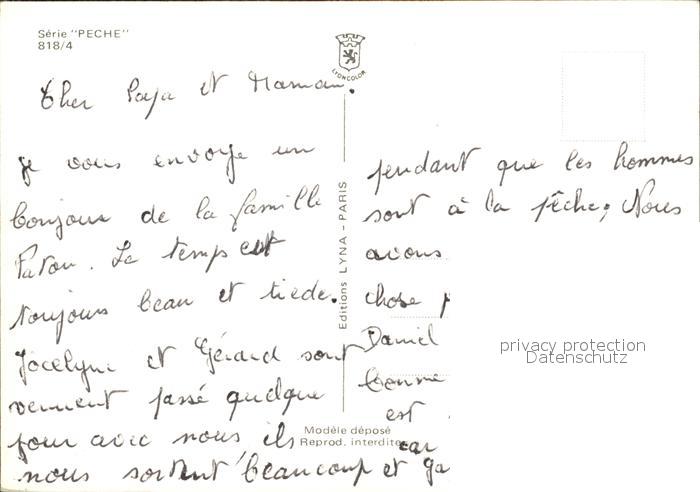 Série "PECHE"
818/4
LYONCOLOR
Cher Papa et Maman.
je vous envoye un
bonjour de la famille
Paton. Le temps est
toujours beau et tiede.
Jocelyne et Gérard sont
vennent passé quelque
jour avec nous ils
nous sortent beaucoup et ça
Editions LYNA - PARIS
Modèle déposé
Reprod. interdite
pendant que les hommes
sont à la pêche, Nous
avons
chose p
Daniel
bonne
est
car
privacy protection
Datenschutz